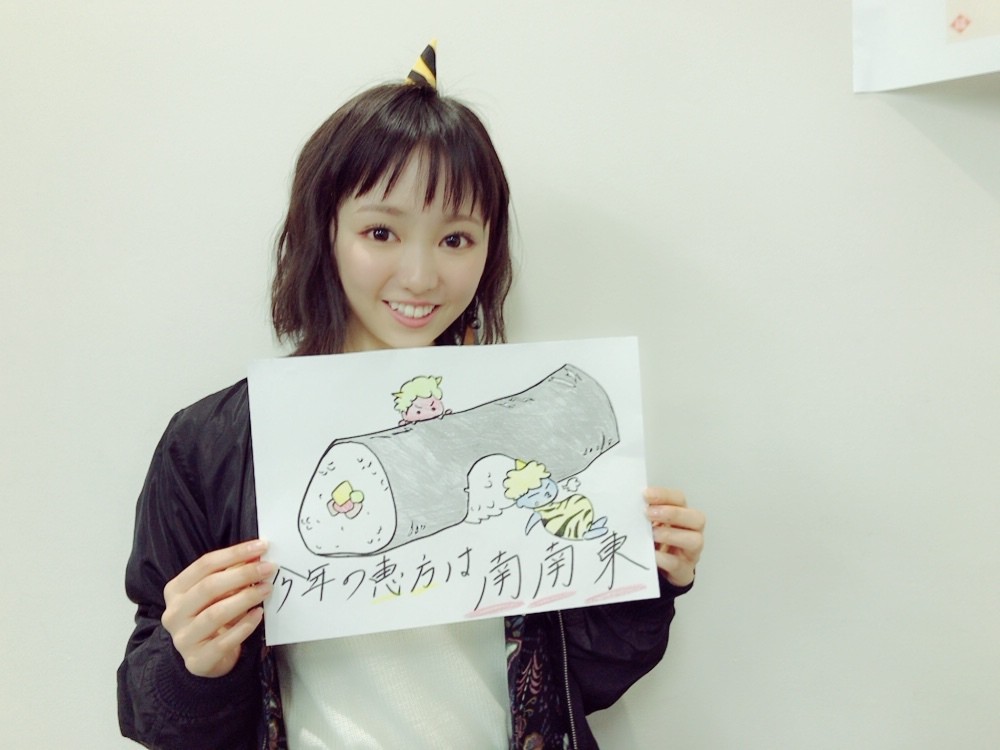 今年の恵方は南南東